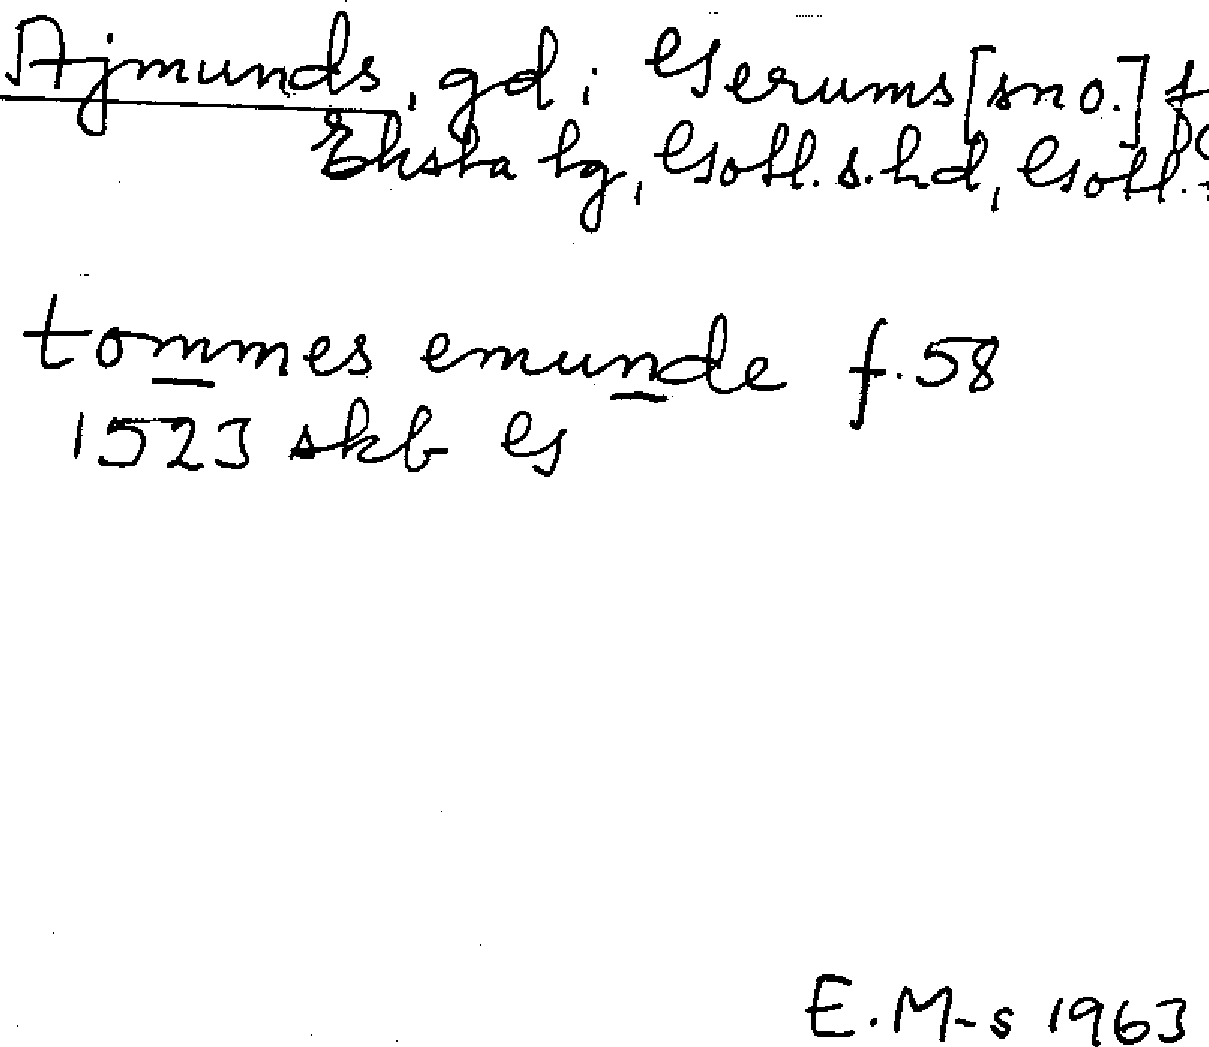 Ajmunds, gd i Gerums [sn o.]
Eksta tg, Gotl. s. hd, Gotl.
tommes emunde f. 58
1523 skb G
E. M-s 1963